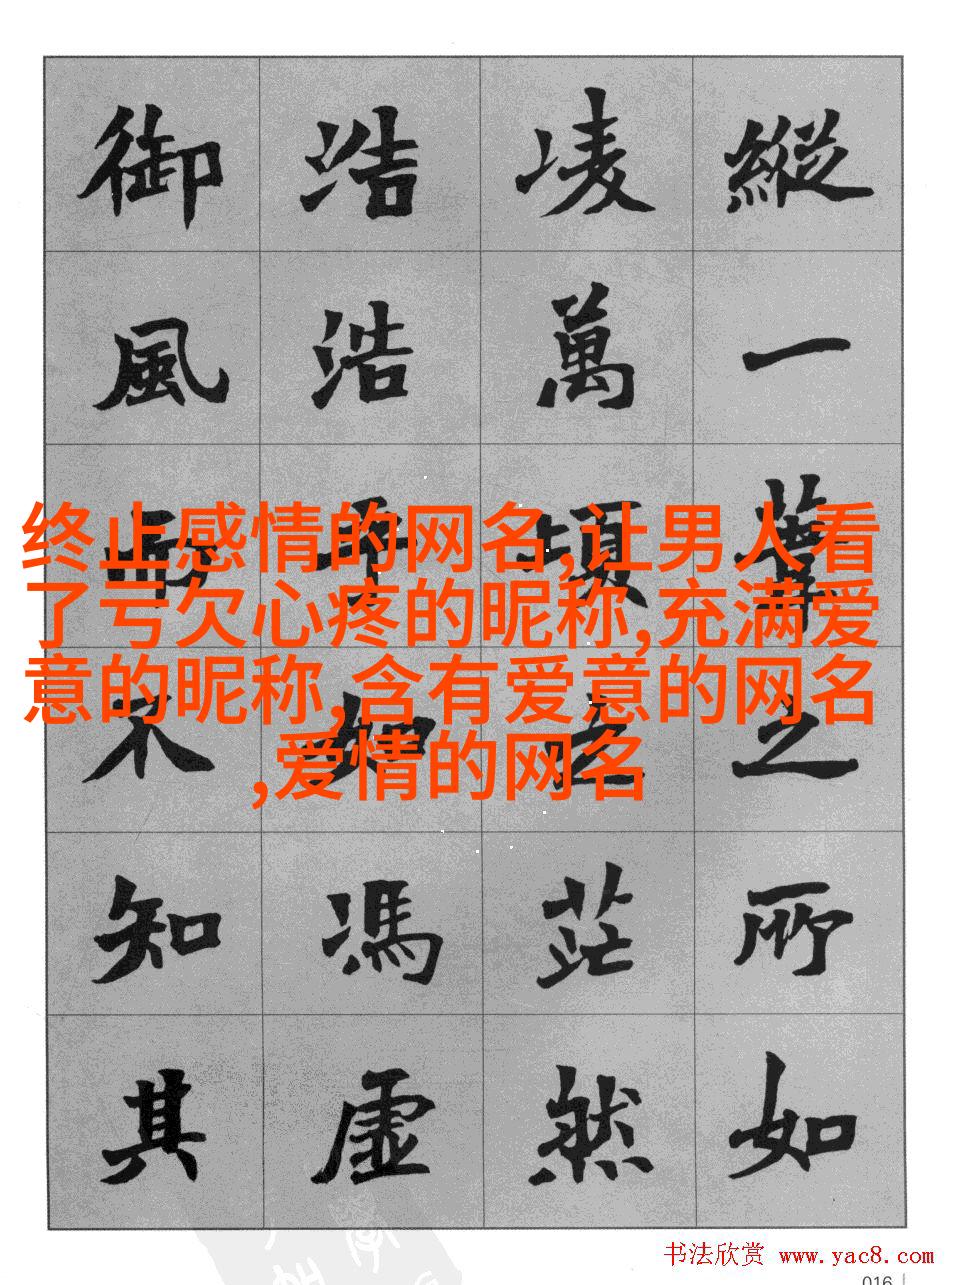 縱一葦之所如
凌萬頃之茫然
浩浩乎如馮虛
御風而不知其
终止感情的网名,让男人看
了亏欠心疼的昵称,充满爱
意的昵称,含有爱意的网名
,爱情的网名
书法欣赏 www.yac8.com
016